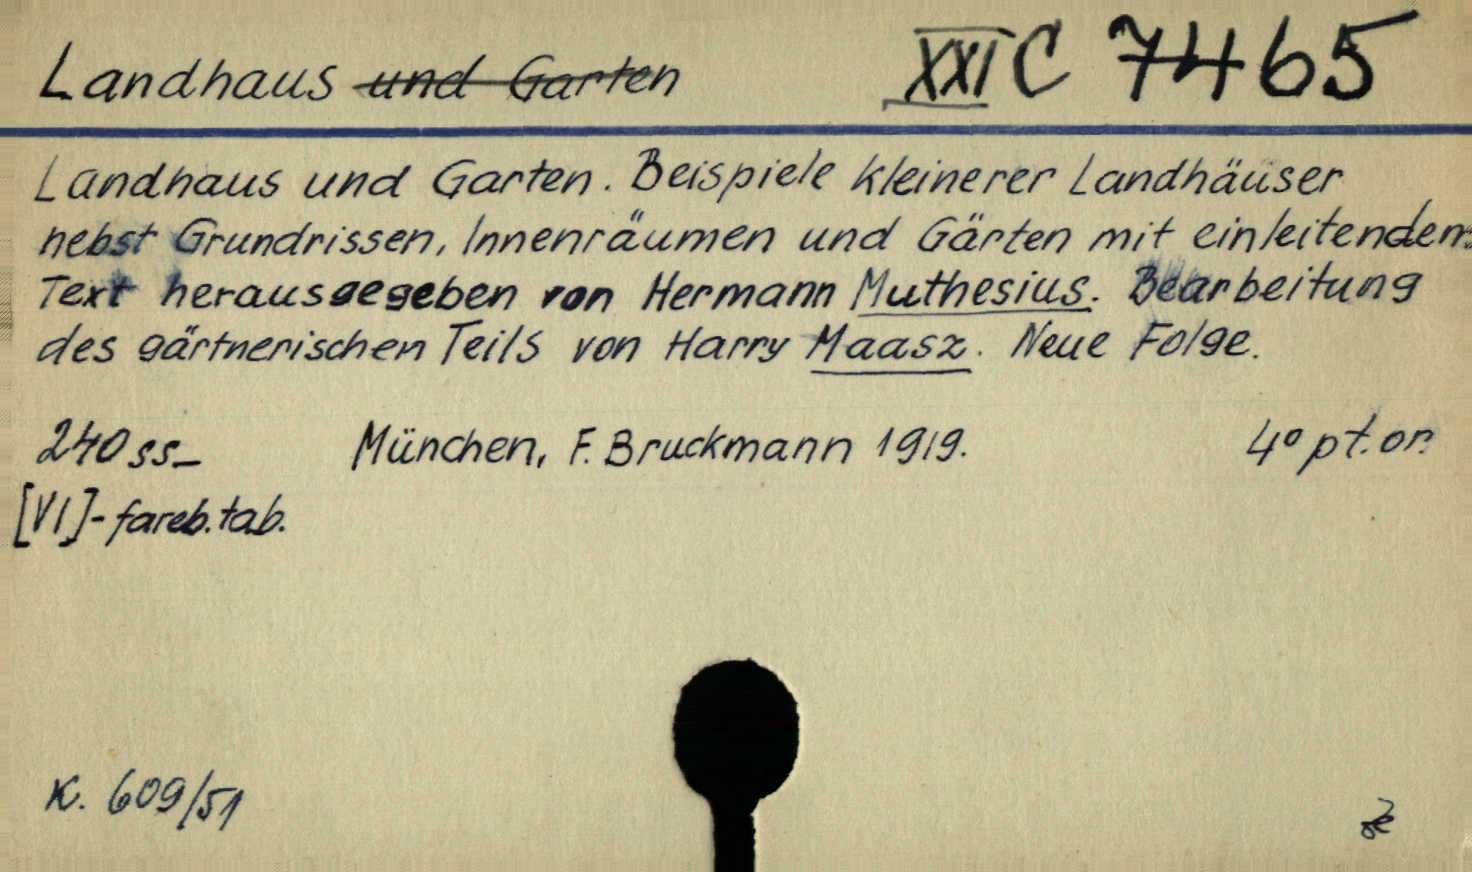 Landhaus und Garten XXI C 7465
Landhaus und Garten. Beispiele kleinerer Landhäuser
nebst Grundrissen, Innenräumen und Gärten mit einleitendem
Text herausgegeben von Hermann Muthesius. Bearbeitung
des gärtnerischen Teils von Harry Maasz. Neue Folge.
240 ss_ München, F. Bruckmann 1919. 4° pt. or.
[VI]-fareb. tab.
K. 609/51